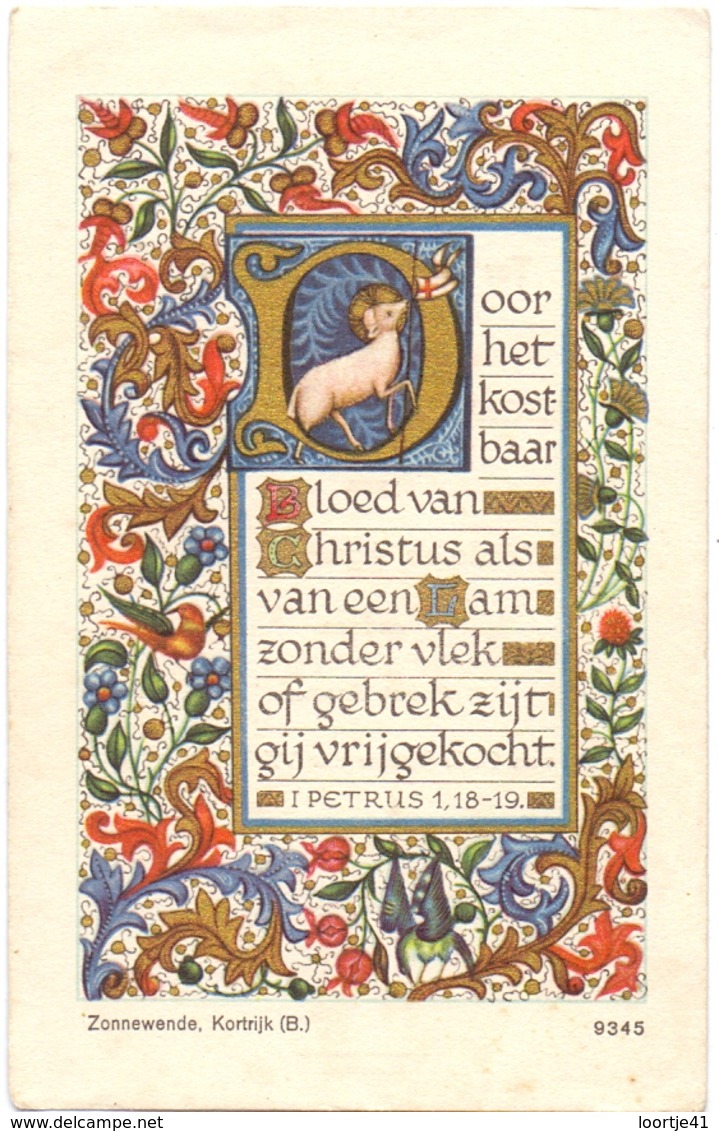 Door
het
kost
baar
Bloed van
Christus als
van een Lam
zonder vlek
of gebrek zijt
gij vrijgekocht.
I PETRUS 1,18-19.
Zonnewende, Kortrijk (B.) 9345
www.delcampe.net loortje41